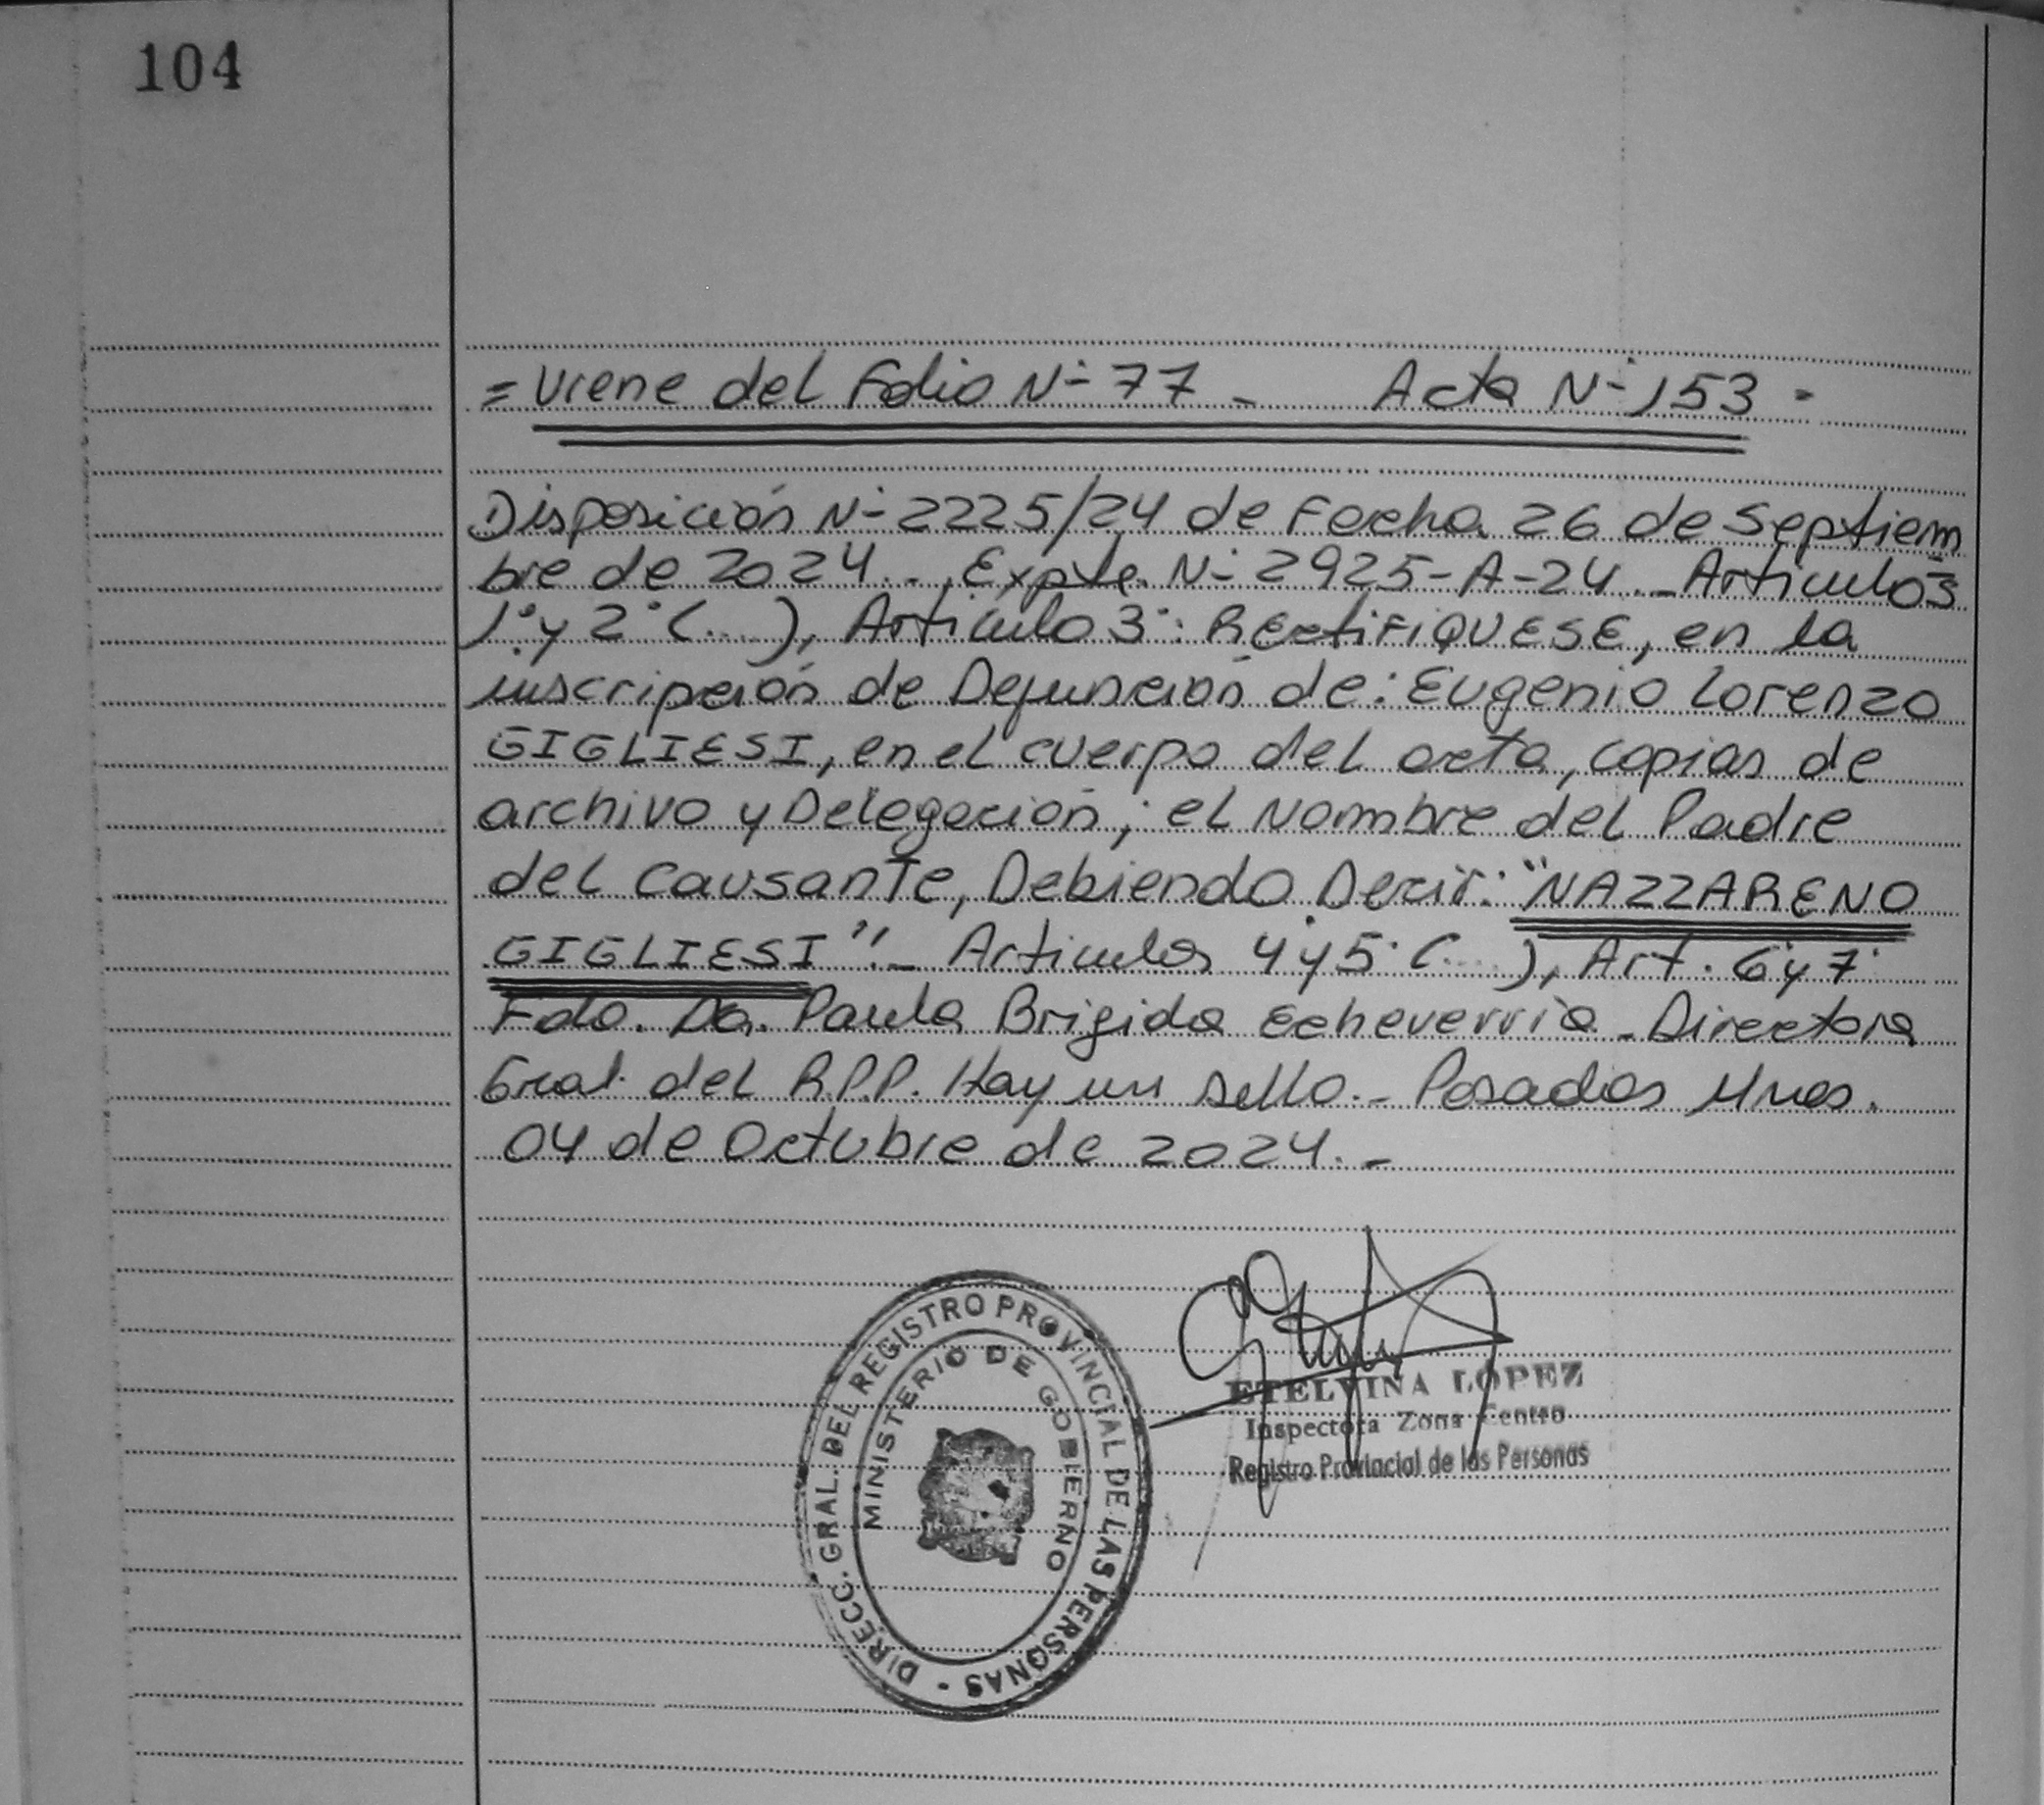 104
= Viene del Folio Nº 77 - Acta Nº 153 -
Disposición Nº 2225/24 de Fecha 26 de Septiem
bre de 2024.-, Expte. Nº 2925-A-24.- Artículos
1º y 2º (...), Artículo 3º: RectiFiQUESE, en la
inscripción de Defunción de: Eugenio Lorenzo
GIGLIESI, en el cuerpo del acta, copias de
archivo y Delegación; el Nombre del Padre
del Causante, Debiendo Decir: "NAZZARENO
GIGLIESI".- Articulos 4º y 5º (...), Art. 6º y 7º
Fdo. Da. Paula Brigida Echeverría - Directora
Gral. del R.P.P. Hay un sello.- Posadas Mnes.
04 de Octubre de 2024.-
DIRECC. GRAL. DEL REGISTRO PROVINCIAL DE LAS PERSONAS -
MINISTERIO DE GOBIERNO
ETELVINA LOPEZ
Inspectora Zona Centro
Registro Provincial de las Personas